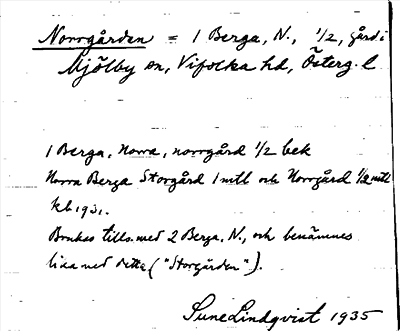 Norrgården = 1 Berga, N., 1/2, gård i
Mjölby sn, Vifolka hd, Österg. l
1 Berga, Norra, norrgård 1/2 bek
Norra Berga Storgård 1 mtl och Norrgård 1/2 mtl
kb 1931.
Brukas tills. med 2 Berga, N., och benämnes
lika med detta ("Storgården").
Sune Lindqvist 1935